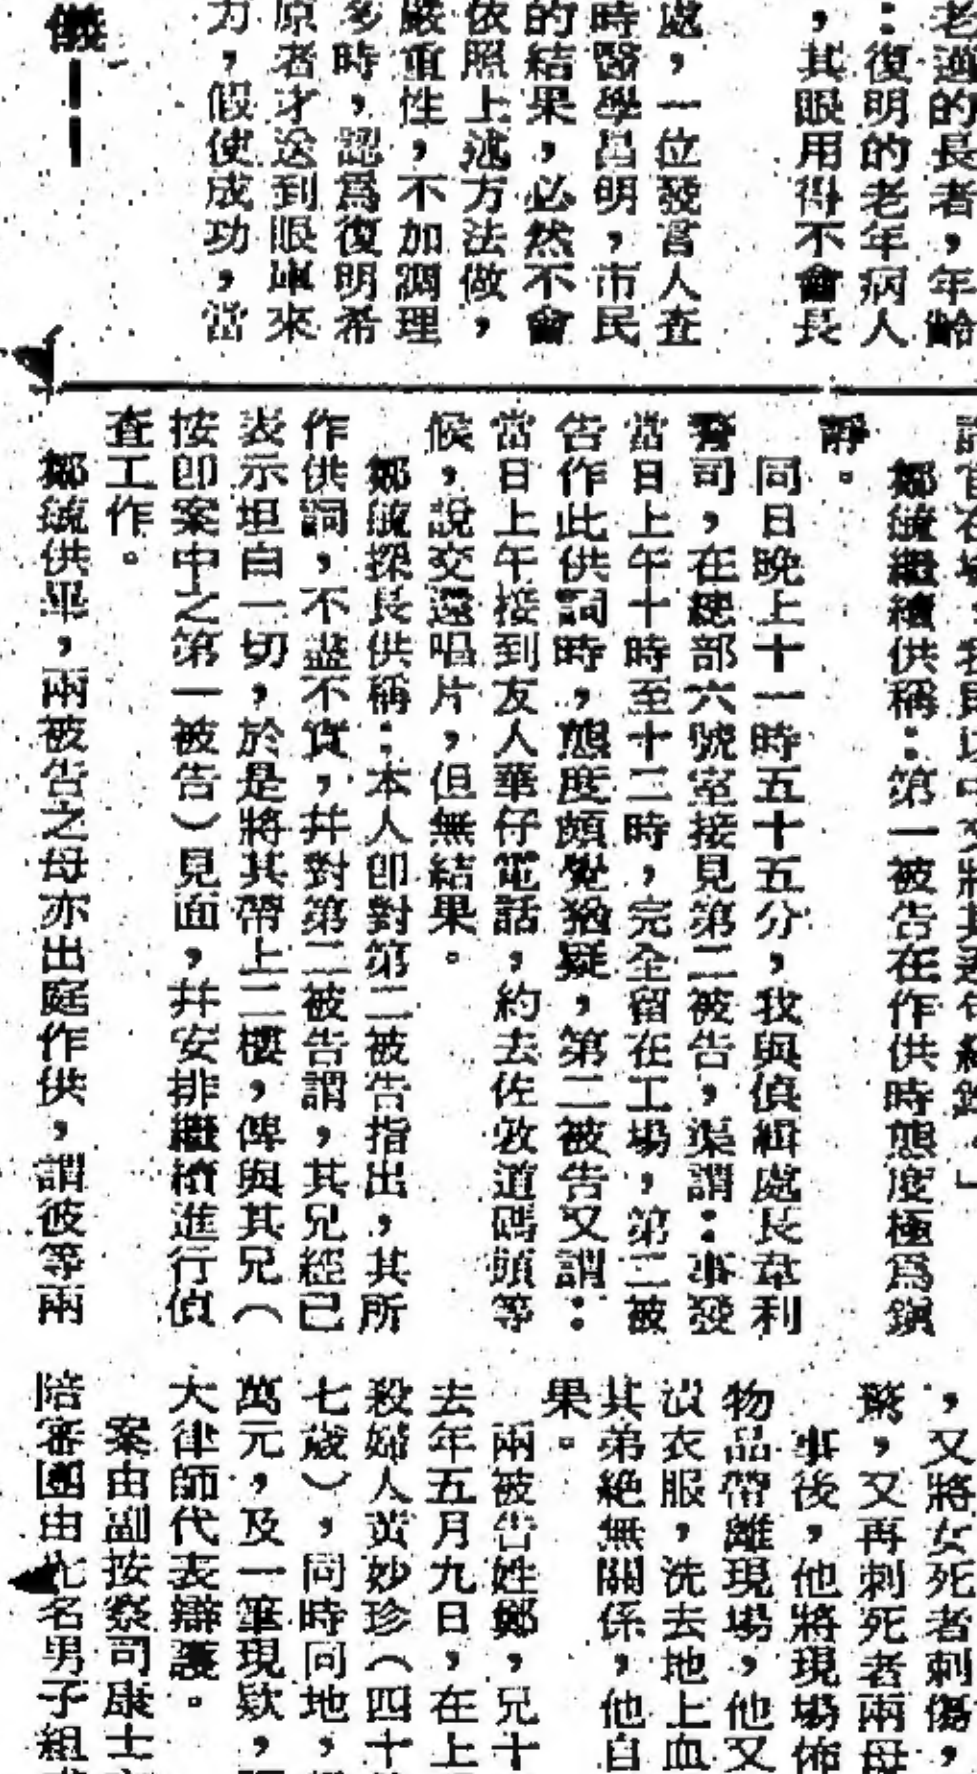 老過的長者,年齡
:復明的老年病人
,其眼用得不會長
處,一位發言人查
時醫學昌明,市民
的結果,必然不會
依照上述方法做,
嚴重性,不加調理
多時,認爲復明希
原者才送到眼庫來
力,假使成功,當
儀——
鄭毓繼續供稱:第一被告在作供時態度極爲鎭
靜。
同日晚上十一時五十五分,我與偵緝處長韋利
警司,在總部六號室接見第二被告,渠謂:事發
當日上午十時至十二時,完全留在工場,第二被
告作此供詞時,態度頗覺猶疑,第二被告又謂:
當日上午接到友人華仔電話,約去佐敦道碼頭等
候,說交還唱片,但無結果。
鄭毓探長供稱:本人即對第二被告指出,其所
作供詞,不盡不實,幷對第二被告謂,其兄經已
表示坦白一切,於是將其帶上二樓,俾與其兄(
按即案中之第一被告)見面,幷安排繼續進行偵
查工作。
鄭毓供畢,兩被告之母亦出庭作供,謂彼等兩
,又將女死者刺傷,
,又再刺死者兩母
事後,他將現場佈
物品帶離現場,他又
漬衣服,洗去地上血
其弟絕無關係,他自
果。
兩被告姓鄭,兄十
去年五月九日,在上
殺婦人黃妙珍(四十
七歲),同時同地,
萬元,及一筆現欵,
大律師代表辯護。
案由副按察司康士
陪審團由七名男子組